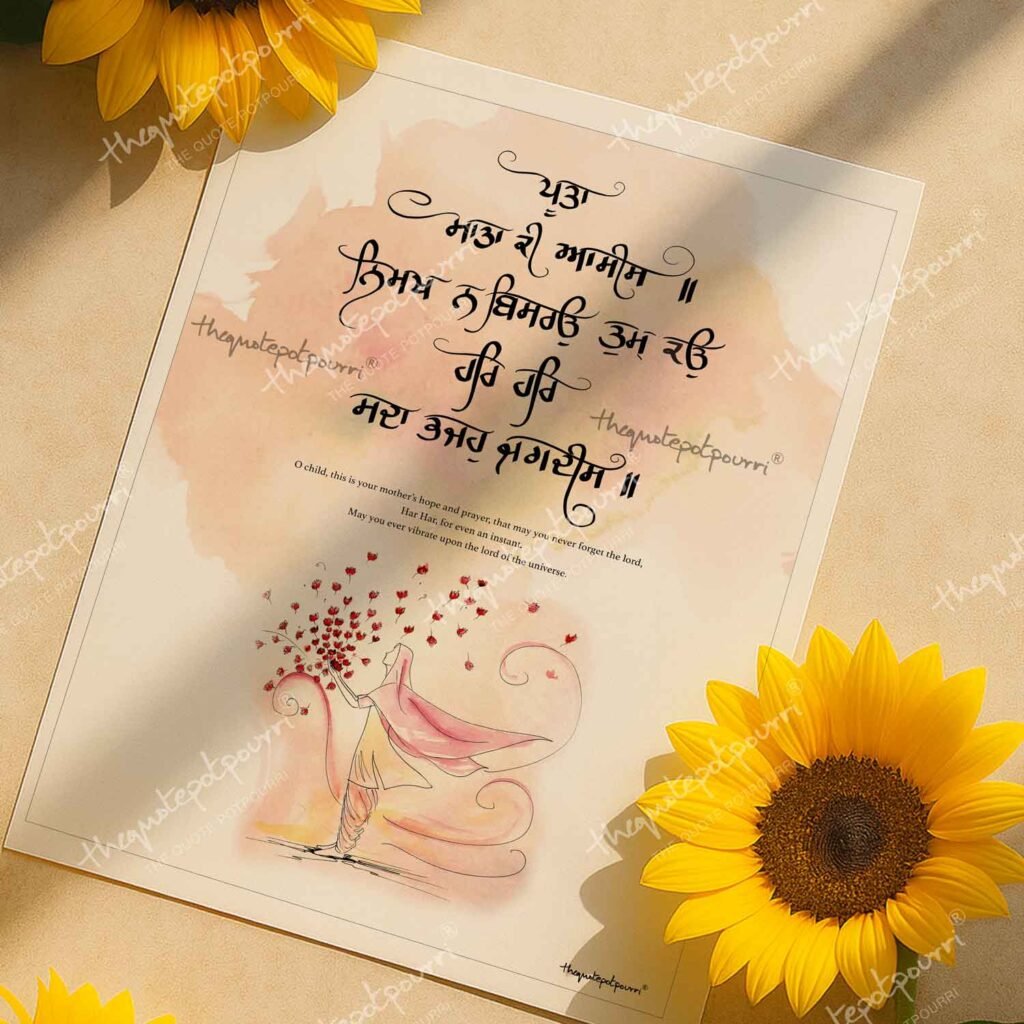 ਪੂਤਾ
ਮਾਤਾ ਕੀ ਆਸੀਸ ॥
ਨਿਮਖ ਨ ਬਿਸਰਉ ਤੁਮ੍ ਕਉ
ਹਰਿ ਹਰਿ
ਸਦਾ ਭਜਹੁ ਜਗਦੀਸ ॥
O child, this is your mother's hope and prayer, that may you never forget the lord,
Har Har, for even an instant.
May you ever vibrate upon the lord of the universe.
thequotepotpourri®
thequotepotpourri®
thequotepotpourri®
THE QUOTE POTPOURRI